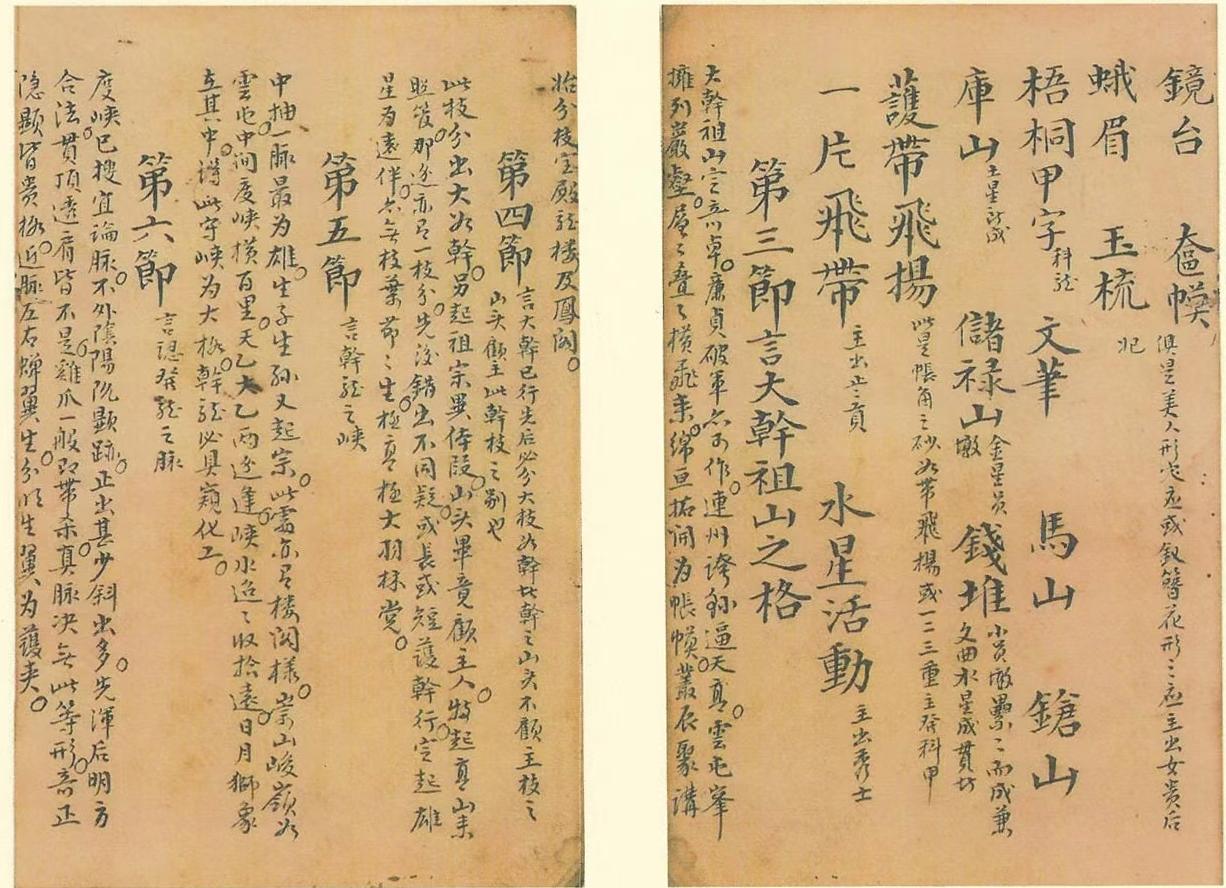 鏡台 奩幙 俱是美人形穴應或釵簪花形之應主出女贵后
妃
蛾眉 玉梳
梧桐甲字 科龍 文筆 馬山 鎗山
庫山 土星所成 儲禄山 金星员墩 錢堆 小员墩壘々而成兼文曲水星成貫坊
護帶飛揚 此是帳角之砂如帶飛揚或一二三重主發科甲
一片飛帶 主出 水星活動 主出秀士
第三節言大幹祖山之格
大幹祖山定高卓。廉貞破軍亦可作。連州誇縣逼天高。雲屯峯
擁列巖壑。層々叠々橫飛來。綿亘拓開為帳幙。叢辰聚講
始分枝。宝殿龍楼及鳳閣。
第四節 言大幹已行先后必分大枝如幹此幹之山头不顧主枝之山头顧主此幹枝之别也
此枝分出大如幹。另起祖宗異侍段。山头畢竟顧主人。特起高山来
照後那。迹亦有一枝分。先後錯出不同疑。或長或短護幹行。定起雄
星为遠伴。亦无枝葉節々生。極高極大羽林党。
第五節 言幹龍之峡
中抽一脈最为雄。生子生孫又起宗。此處亦有楼阁樣。崇山峻嶺如
雲屯。中间度峡橫百里。天乙太乙两邊逢。峡水迢々收拾遠。日月獅象
立其中。謂此守峡为大格。幹龍必具窺化工。
第六節 言認發龍之脈
度峡已搜宜論脈。不外陰陽阮顯跡。正出甚少斜出多。先渾后明方
合法。貫頂透肩皆不是。雞爪一般即帶杀。真脈决无此等形。斎正
隐顯皆贵格。近脈左右蟬翼生。分明生翼为護夹。